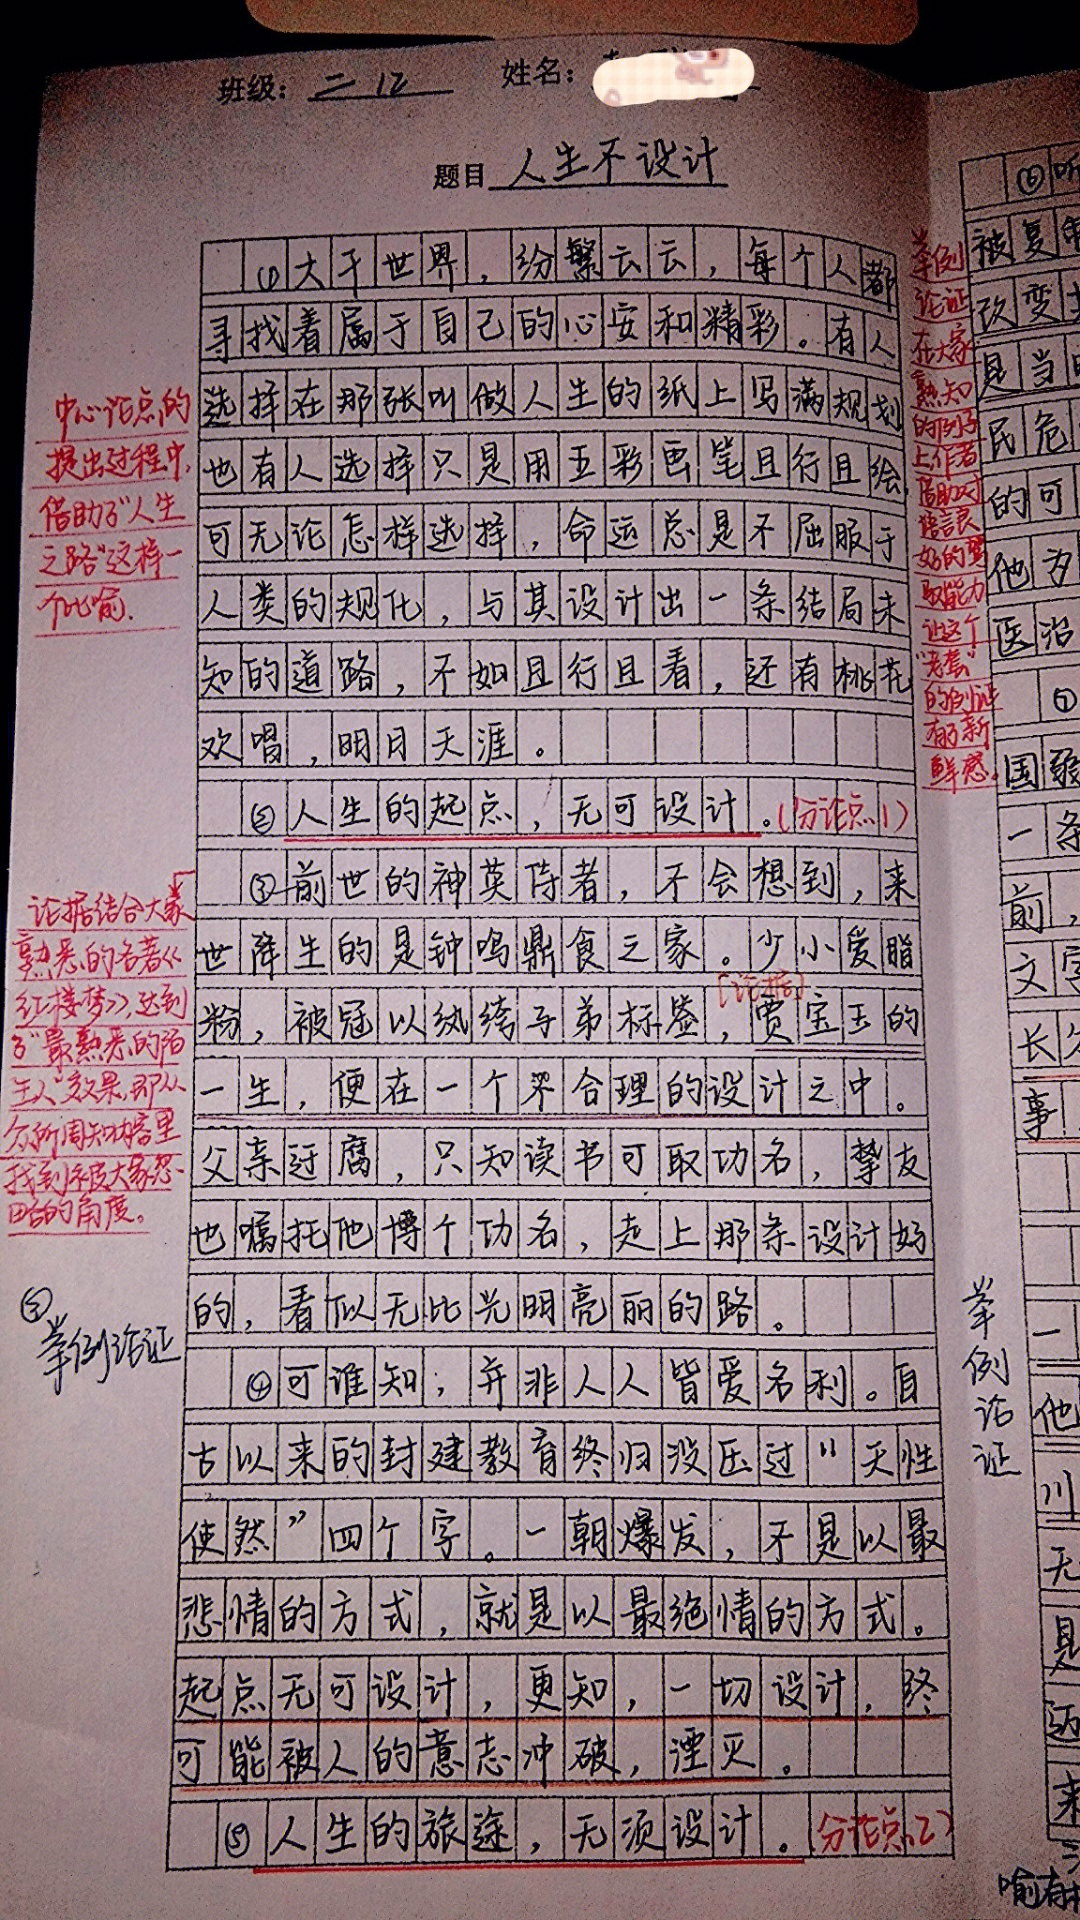 班级：二12 姓名：
题目 人生不设计
①大千世界，纷繁云云，每个人都
寻找着属于自己的心安和精彩。有人
选择在那张叫做人生的纸上写满规划
也有人选择只是用五彩画笔且行且绘，
可无论怎样选择，命运总是不屈服于
人类的规化，与其设计出一条结局未
知的道路，不如且行且看，还有桃花
欢唱，明月天涯。
②人生的起点，无可设计。（分论点1）
③前世的神英侍者，不会想到，来
世降生的是钟鸣鼎食之家。少小爱脂
粉，被冠以纨绔子弟标签，贾宝玉的
［论据］
一生，便在一个不合理的设计之中。
父亲迂腐，只知读书可取功名，挚友
也嘱托他博个功名，走上那条设计好
的，看似无比光明亮丽的路。
④可谁知，并非人人皆爱名利。自
古以来的封建教育终归没压过“天性
使然”四个字。一朝爆发，不是以最
悲情的方式，就是以最绝情的方式。
起点无可设计，更知，一切设计，终
可能被人的意志冲破，湮灭。
⑤人生的旅途，无须设计。（分论点2）
中心论点的
提出过程中，
借助了“人生
之路”这样一
个比喻．
论据结合大家
熟悉的名著《
红楼梦》，达到
了“最熟悉的陌
生人”效果，即从
众所周知的内容里
找到被大家忽
略的角度。
③
举例论证
举例
论证
在大家
熟知
的例子
上作者
借助对
语言良
好的驾
驭能力
让这个
“老套”
的例证
有了新
鲜感。
举
例
论
证
⑥听
被复
改变
是当
民危
的可
他为
医治
⑦
国
一条
前，
文字
长
事
一
他
川
无
是
迈
来
喻有